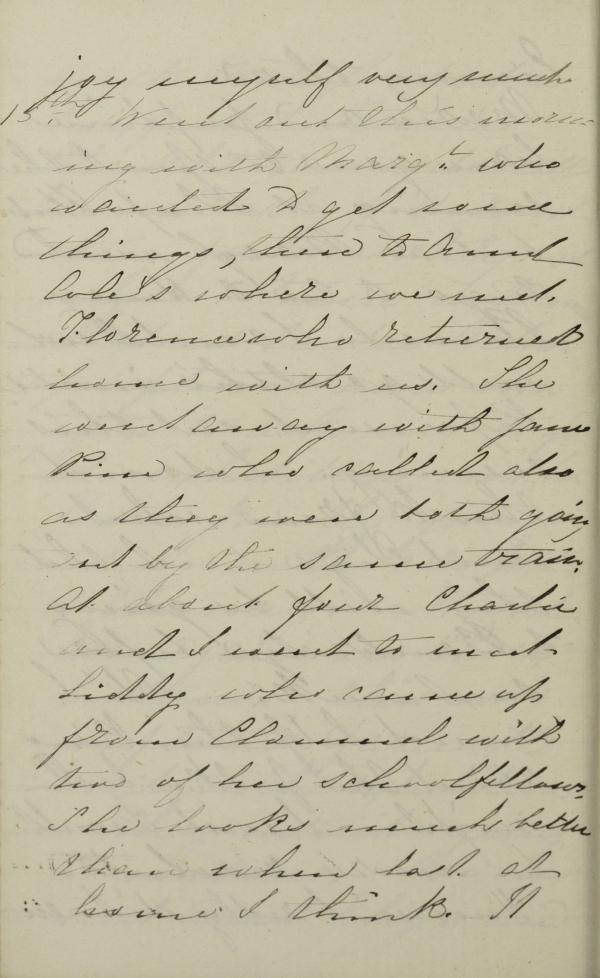 joy myself very much
15th. Went out this morn-
ing with Margt. who
wanted to get some
things, then to Aunt
Cole's where we met
Florence who returned
home with us. She
went away with Jane
Pine who called also
as they were both going
out by the same train.
At about four Charlie
and I went to meet
Liddy who came up
from Clonmel with
two of her schoolfellows.
She looks much better
than when last at
home I think. It